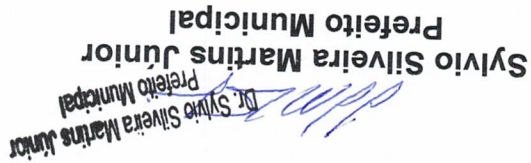 Dr. Sylvio Silveira Martins Júnior
Prefeito Municipal
Sylvio Silveira Martins Júnior
Prefeito Municipal